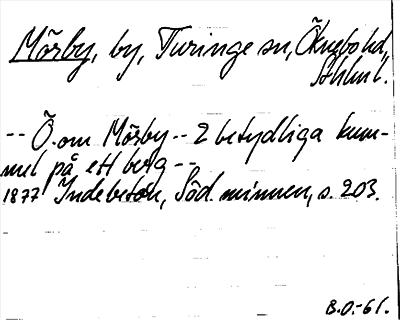 Mörby, by, Turinge sn, Öknebo hd,
Sthlm l.
-- Ö. om Mörby -- 2 betydliga kum-
mel på ett berg --
1877 Indebetou, Söd. minnen, s. 203.
B.O.-61.